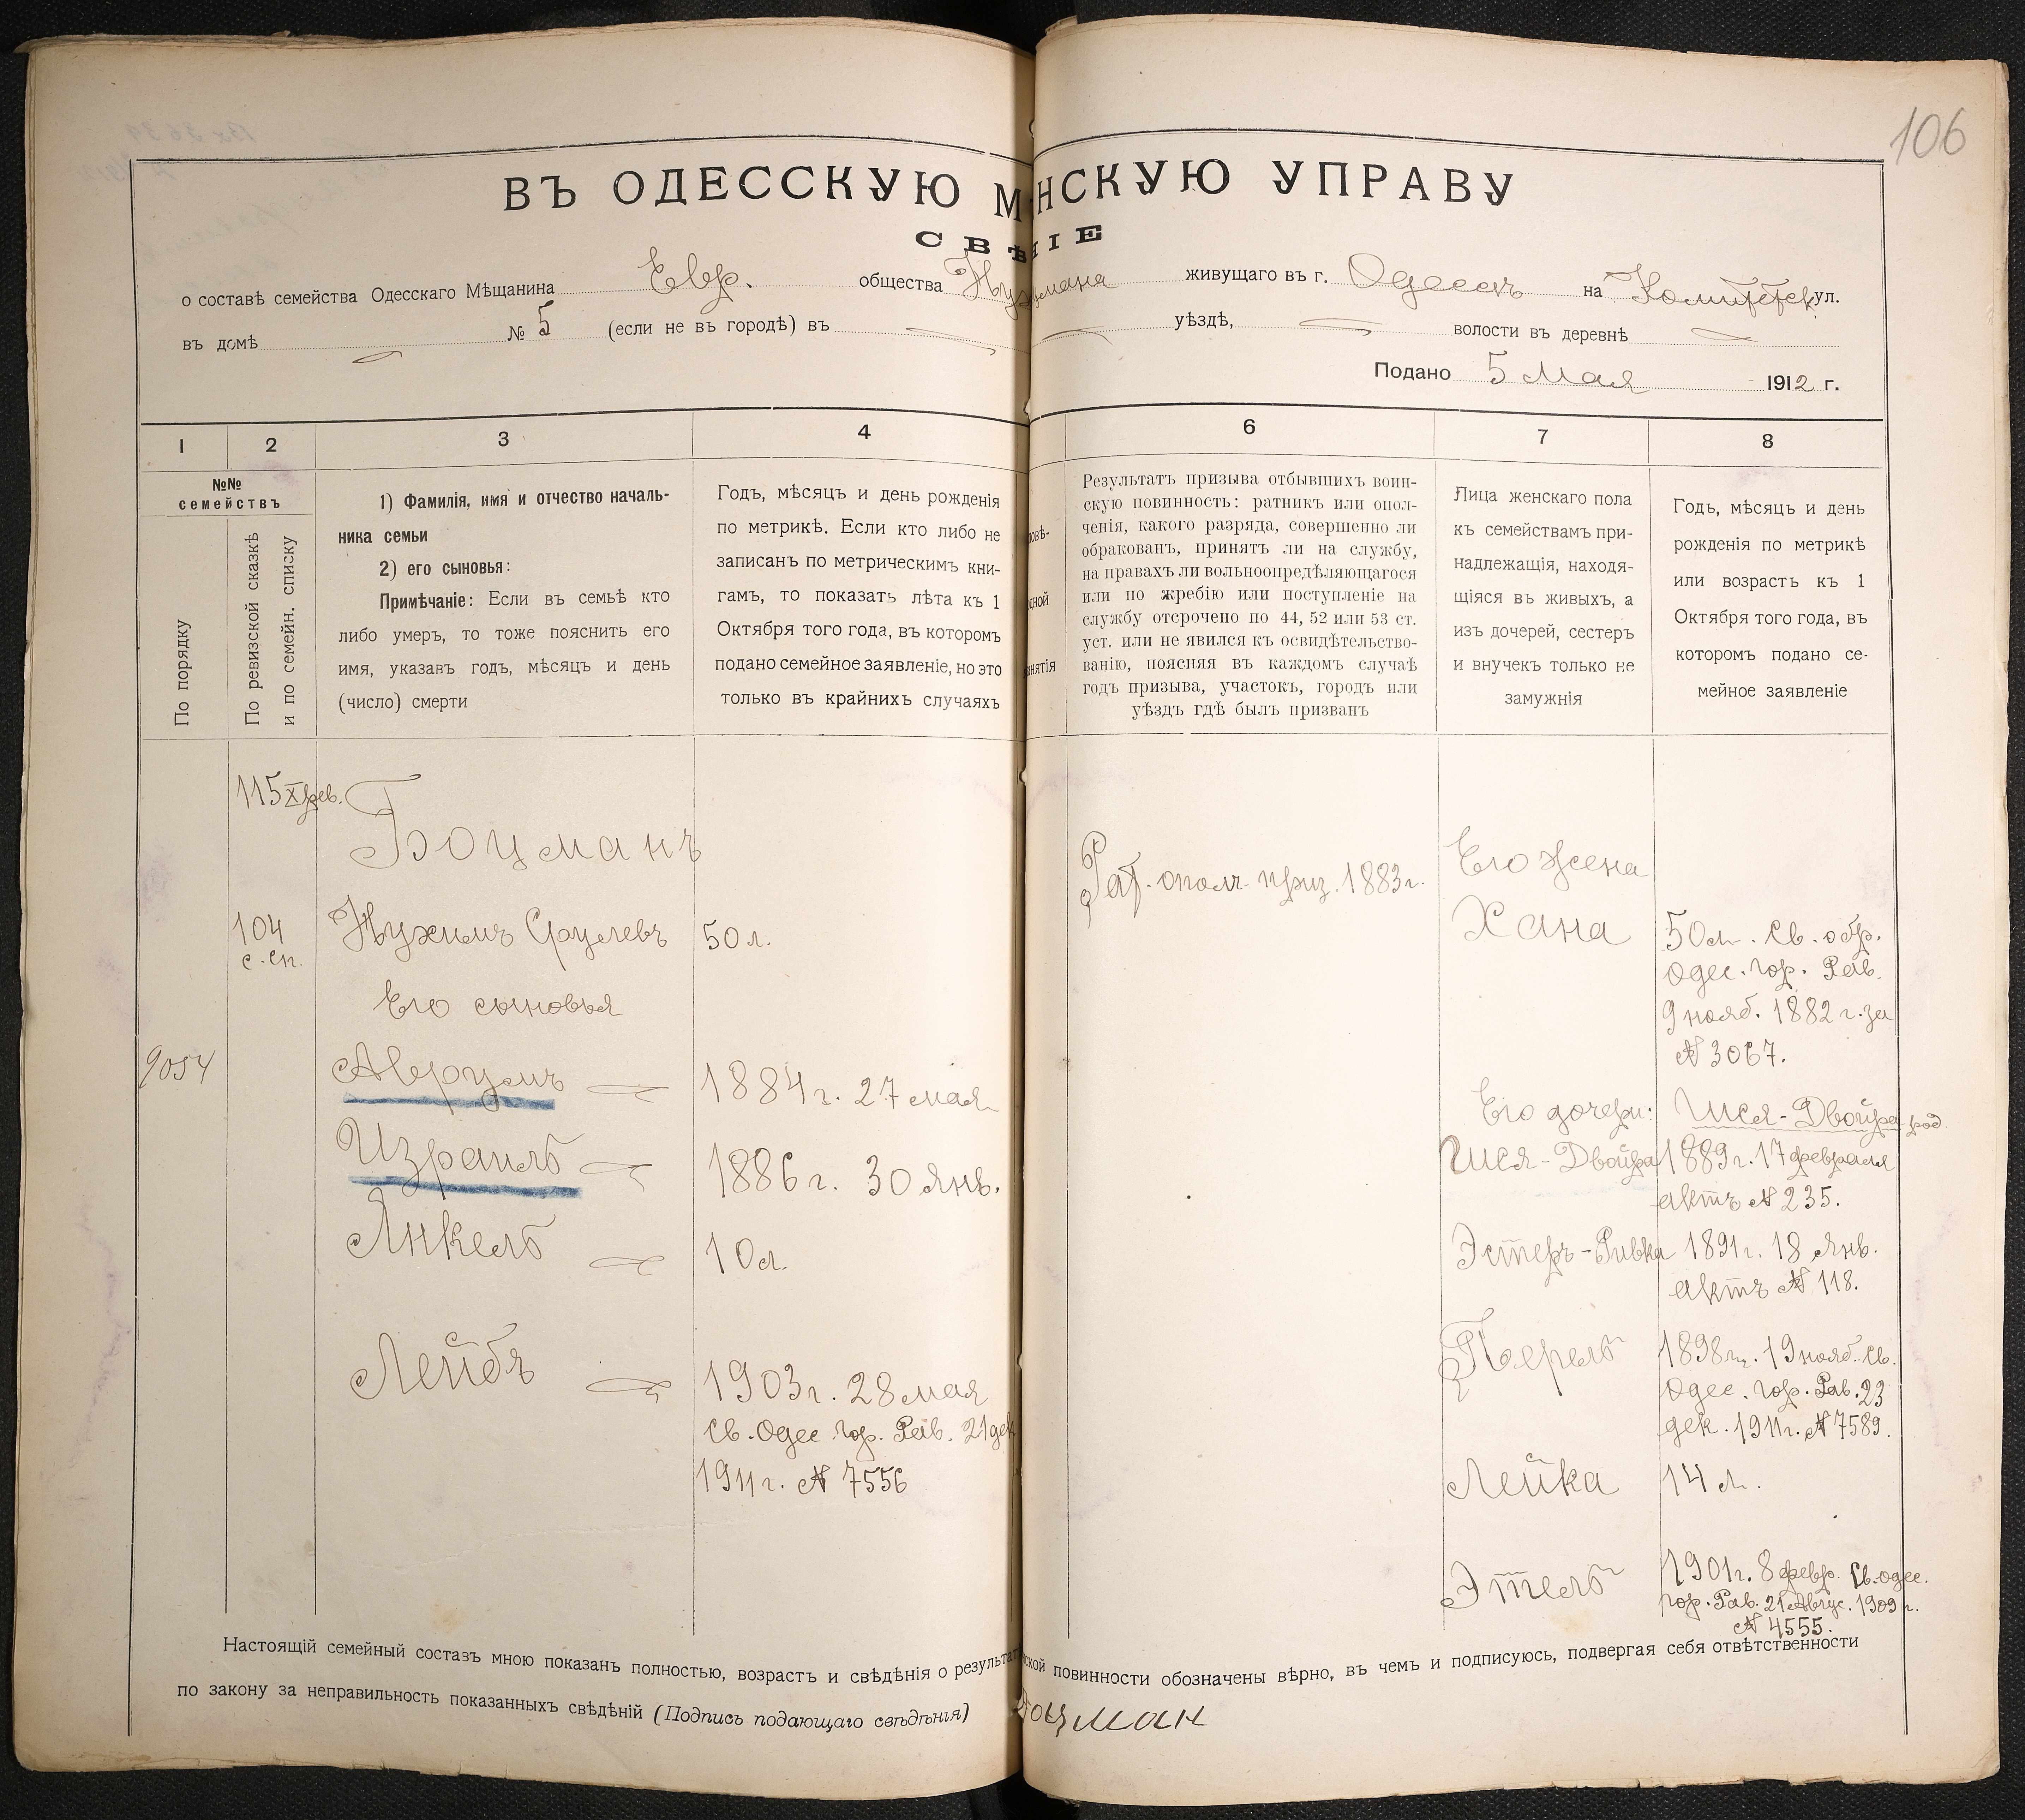 106
ВЪ ОДЕССКУЮ М НСКУЮ УПРАВУ
СВѢ НІЕ
о составѣ семейства Одесскаго Мѣщанина Евр. общества Нухима Боцмана живущаго въ г. Одессѣ на Комитетск ул.
въ домѣ № 5 (если не въ городѣ) въ уѣздѣ, волости въ деревнѣ
Подано 5 Мая 1912 г.
1 2 3 4 6 7 8
№№ семействъ
По порядку
По ревизской сказкѣ
и по семейн. списку
1) Фамилія, имя и отчество началь-
ника семьи
2) его сыновья:
Примѣчаніе: Если въ семьѣ кто
либо умеръ, то тоже пояснить его
имя, указавъ годъ, мѣсяцъ и день
(число) смерти
Годъ, мѣсяцъ и день рожденія
по метрикѣ. Если кто либо не
записанъ по метрическимъ кни-
гамъ, то показать лѣта къ 1
Октября того года, въ которомъ
подано семейное заявленіе, но это
только въ крайнихъ случаяхъ
Результатъ призыва отбывшихъ воин-
скую повинность: ратникъ или опол-
ченія, какого разряда, совершенно ли
обракованъ, принятъ ли на службу,
на правахъ ли вольноопредѣляющагося
или по жребію или поступленіе на
службу отсрочено по 44, 52 или 53 ст.
уст. или не явился къ освидѣтельство-
ванію, поясняя въ каждомъ случаѣ
годъ призыва, участокъ, городъ или
уѣздъ гдѣ былъ призванъ
Лица женскаго пола
къ семействамъ при-
надлежащія, находя-
щіяся въ живыхъ, а
изъ дочерей, сестеръ
и внучекъ только не
замужнія
Годъ, мѣсяцъ и день
рожденія по метрикѣ
или возрастъ къ 1
Октября того года, въ
которомъ подано се-
мейное заявленіе
115 X рев.
Боцманъ
104
с. сп.
Нухимъ Срулевъ 50 л.
Его сыновья
9054
Аврумъ 1884 г. 27 мая
Израиль 1886 г. 30 Янв.
Янкель 10 л.
Лейбъ 1903 г. 28 мая
Св. Одес. Гор. Рав. 21 дек
1911 г. № 7556
Рат. ополч. приз. 1883 г.
Его жена
Хана 50 л. Св. обр.
Одес. Гор. Рав.
9 нояб. 1882 г. за
№ 3067.
Его дочери: Шися-Двойра род.
Шися-Двойра 1889 г. 17 февраля
актъ № 235.
Эстеръ-Ривка 1891 г. 18 Янв.
актъ № 118.
Перель 1898 г. 19 нояб. Св.
Одес. Гор. Рав. 23
дек. 1911 г. № 7589.
Лейка 14 л.
Этель 1901 г. 8 февр. Св. одес.
Гор. Рав. 21 Август. 1909 г.
№ 4555.
Настоящій семейный составъ мною показанъ полностью, возрастъ и свѣдѣнія о результат ской повинности обозначены вѣрно, въ чемъ и подписуюсь, подвергая себя отвѣтственности
по закону за неправильность показанныхъ свѣдѣній (Подпись подающаго свѣдѣнія) Боцман